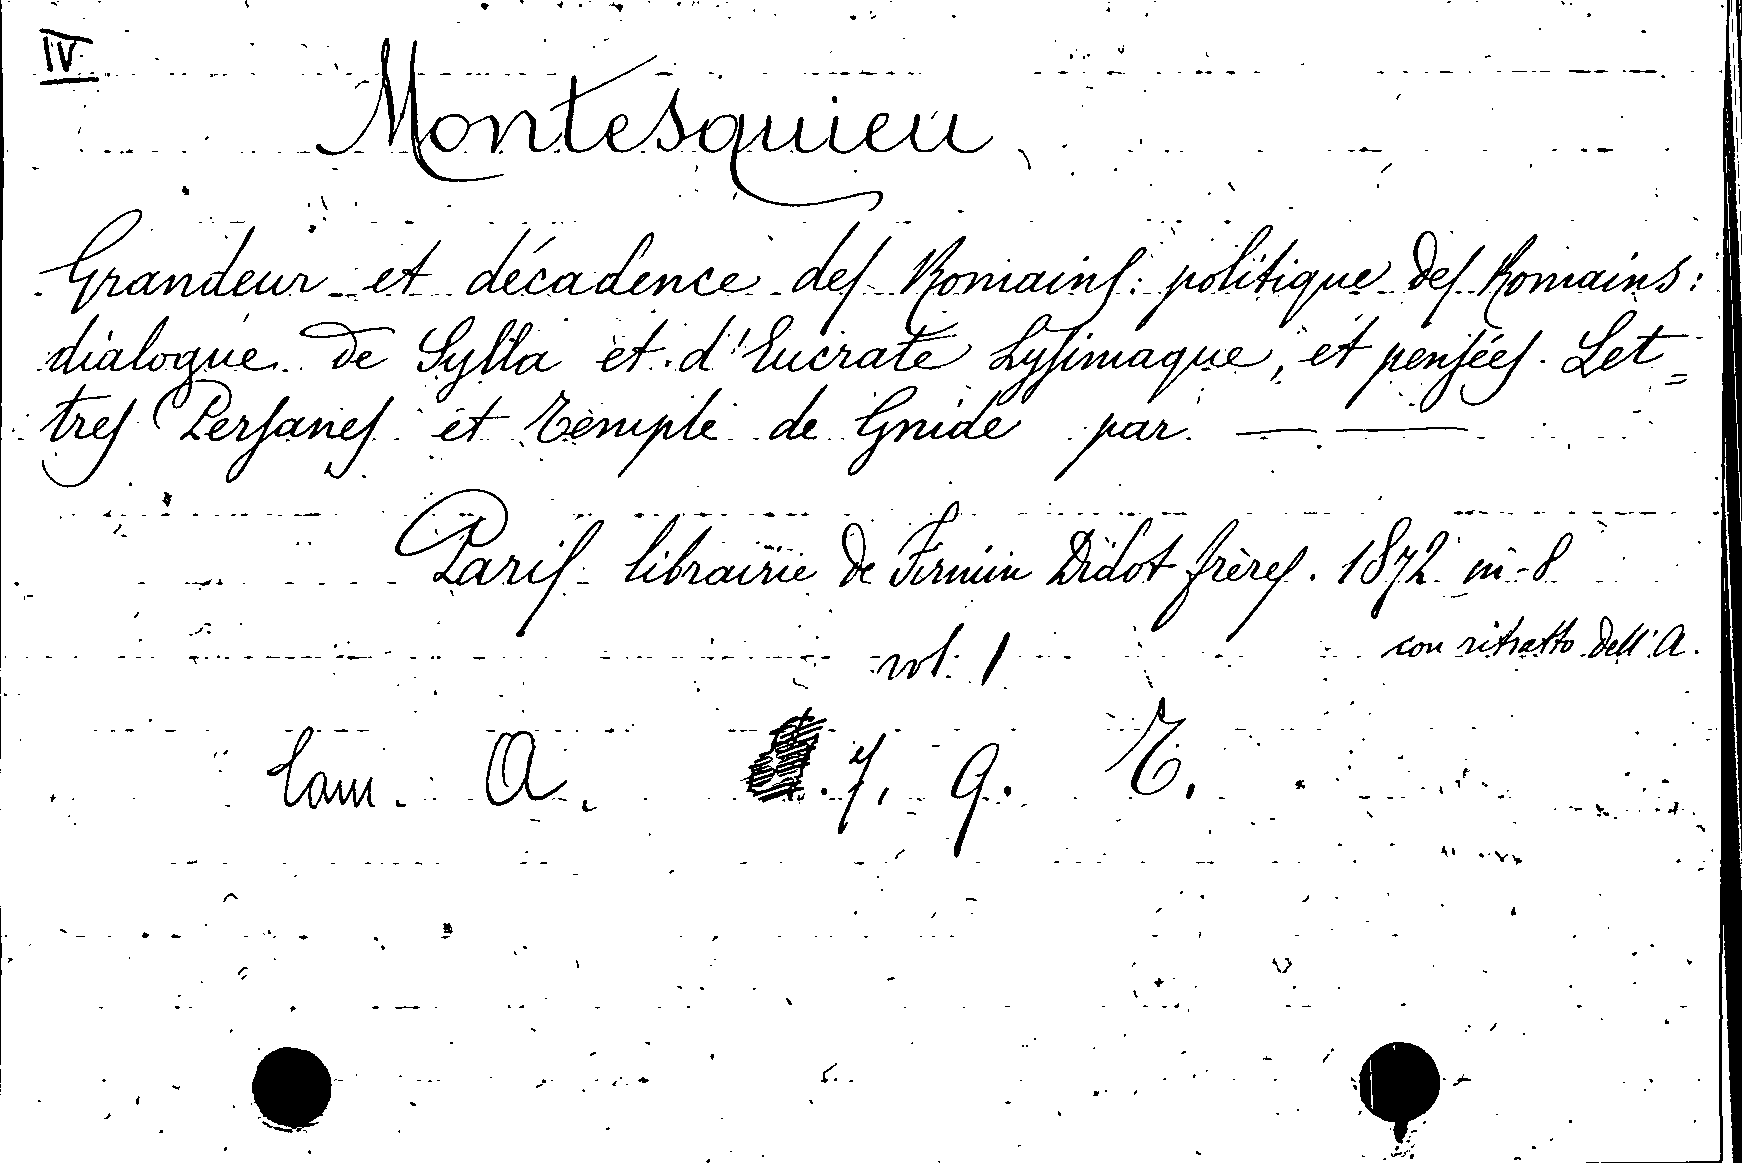 IV
Montesquieu
Grandeur et décadence des Romains: politique des Romains:
dialogue de Sylla et d'Eucrate Lysimaque, et pensées. Let=
tres Persanes et Temple de Gnide par — —
Paris librairie de Firmin Didot frères. 1872 in-8
vol. 1 con ritratto dell'A.
Cam. A. 7. 9. T.